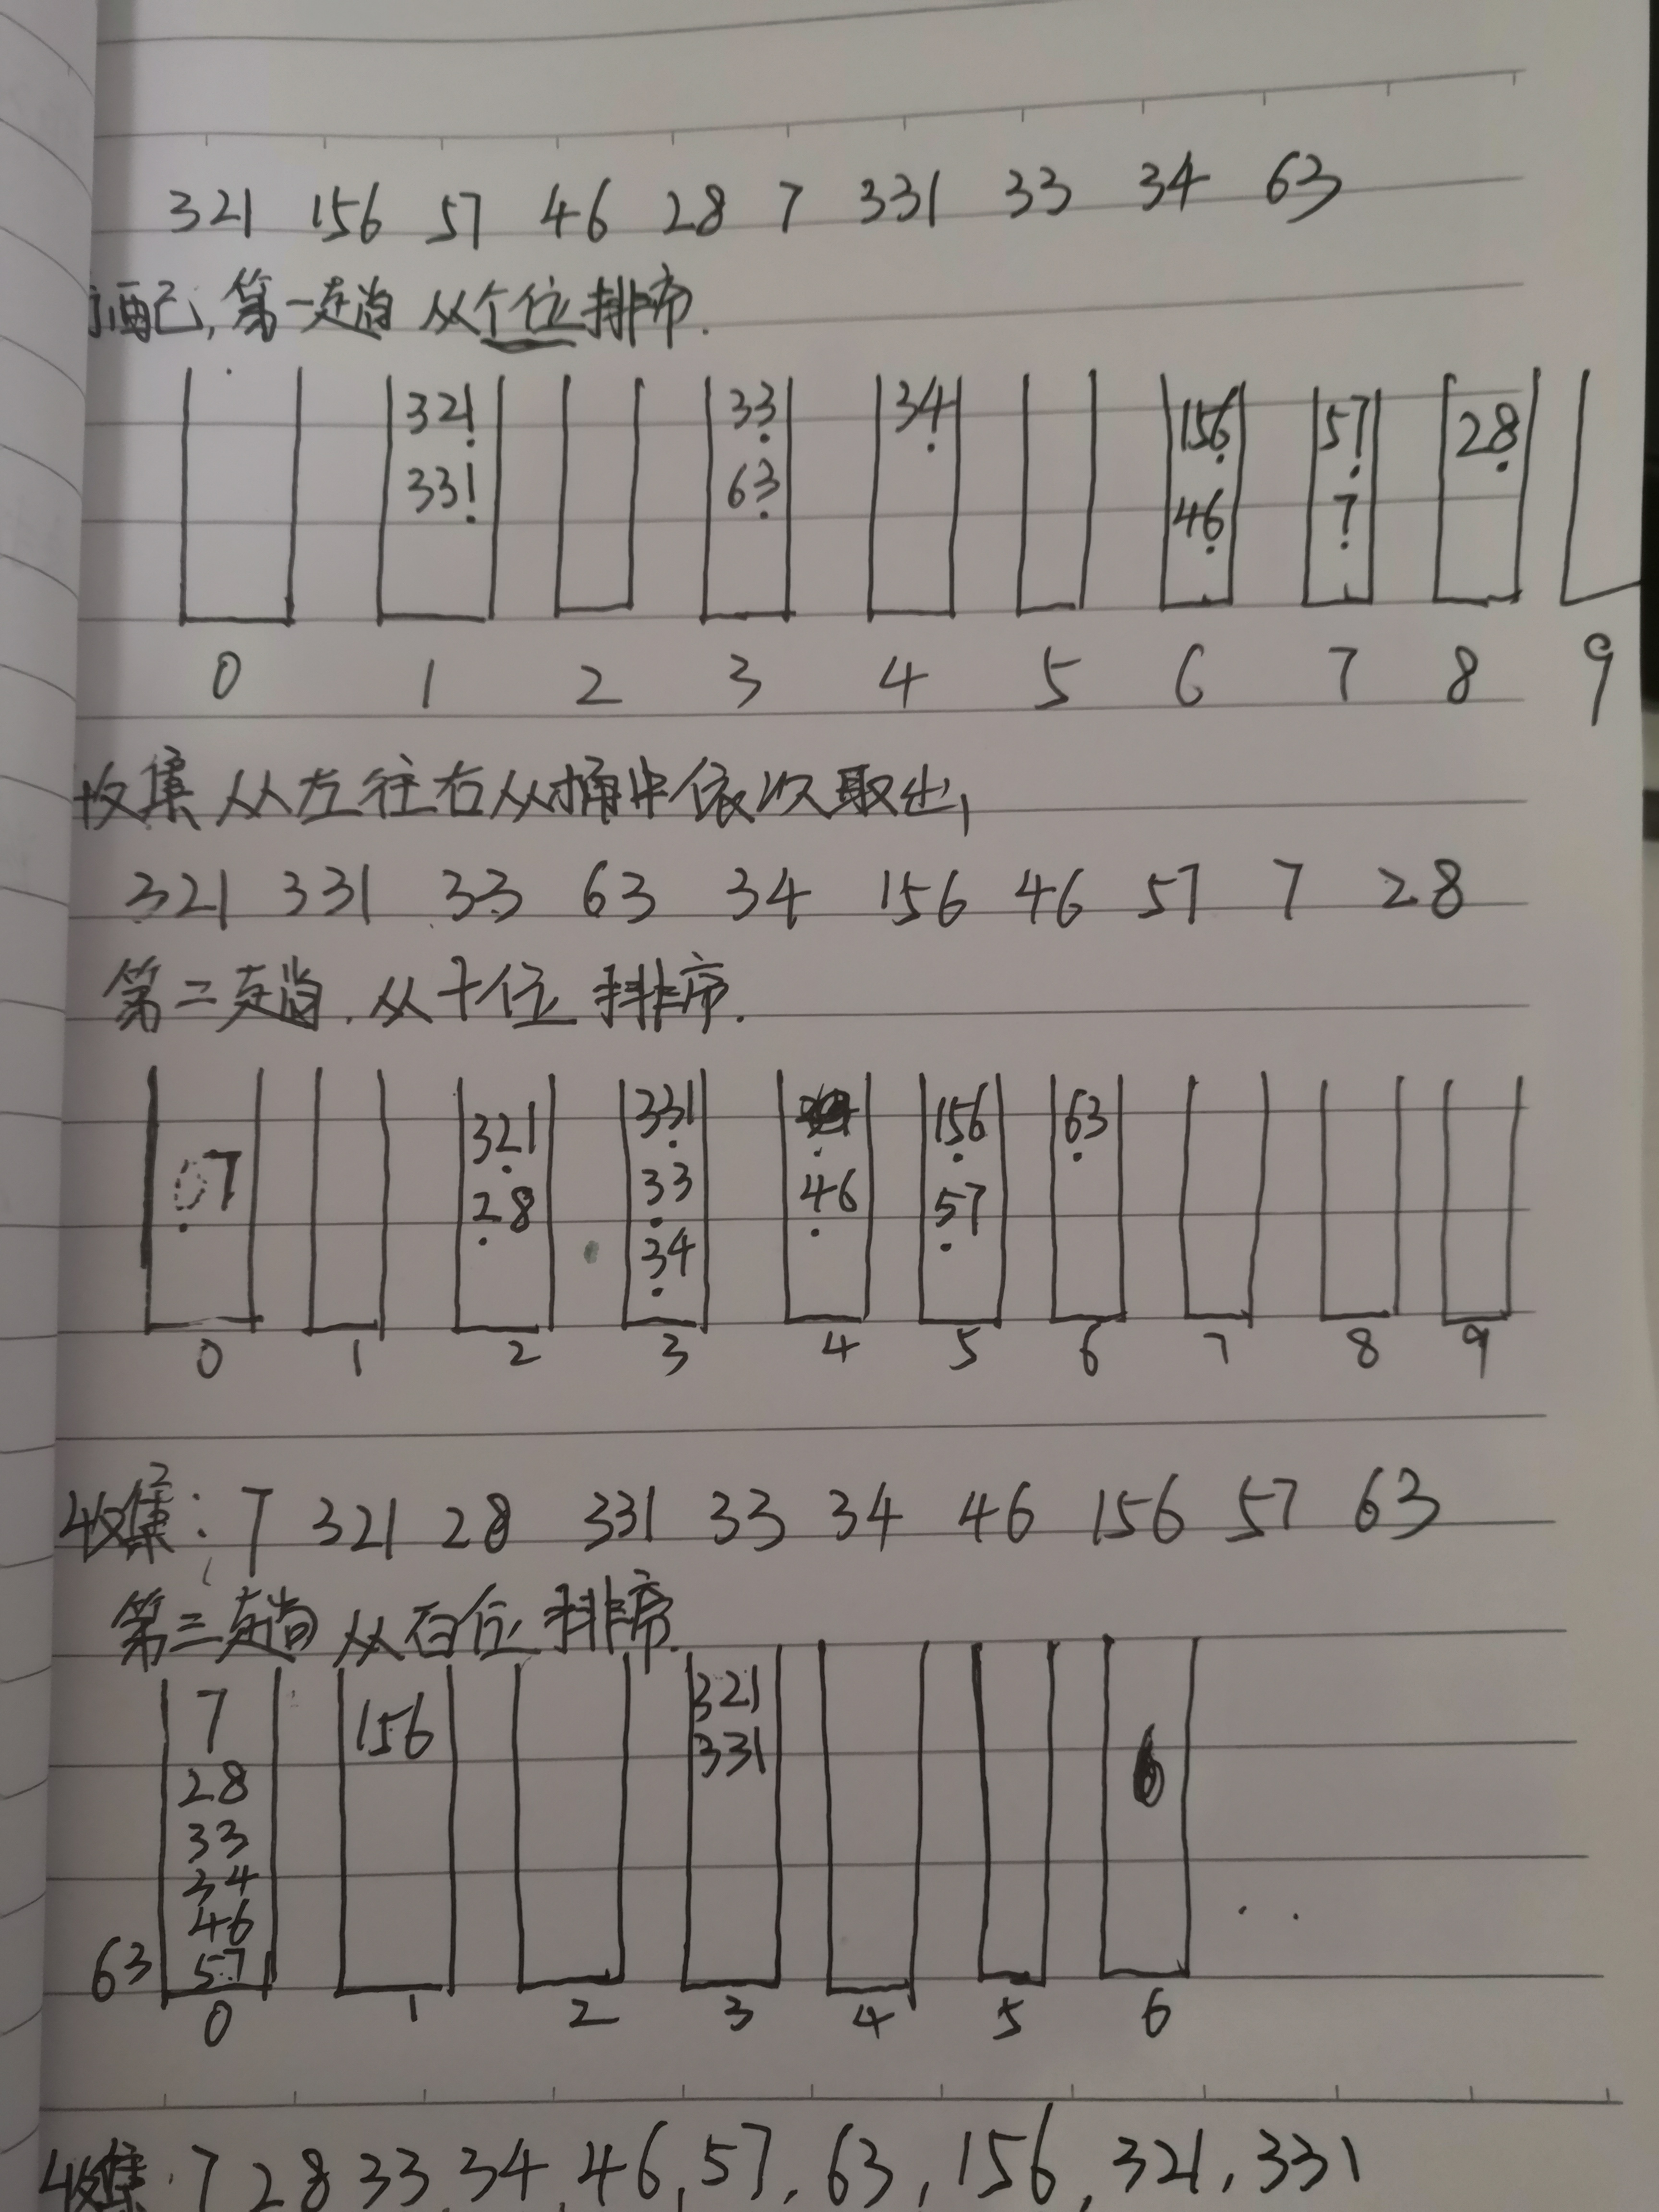 321 156 57 46 28 7 331 33 34 63
分配, 第一趟 从个位排序.
321 33 34 156 57 28
331 63 46 7
0 1 2 3 4 5 6 7 8 9
收集 从左往右从桶中依次取出,
321 331 33 63 34 156 46 57 7 28
第二趟. 从十位 排序.
07 321 331 46 156 63
28 33 57
34
0 1 2 3 4 5 6 7 8 9
收集: 7 321 28 331 33 34 46 156 57 63
第三趟 从百位 排序.
7 156 321
28 331
33
34
46
63 57
0 1 2 3 4 5 6
收集. 7 28 33 34, 46, 57, 63, 156, 321, 331